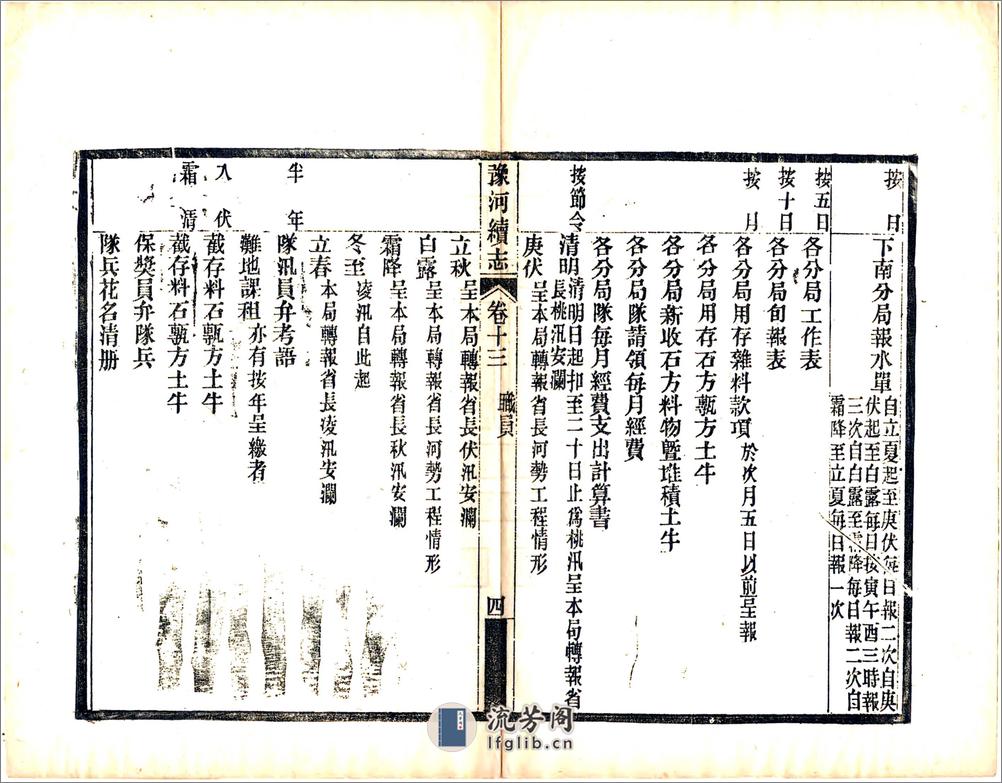 按日 下南分局報水單 自立夏起至庚伏每日報二次自庚
伏起至白露每日按寅午酉三時報
三次自白露至霜降每日報二次自
霜降至立夏每日報一次
按五日 各分局工作表
按十日 各分局旬報表
按月 各分局用存雜料款項 於次月五日以前呈報
各分局用存石方甎方土牛
各分局新收石方料物暨堆積土牛
各分局隊請領每月經費
各分局隊每月經費支出計算書
按節令 清明 清明日起扣至二十日止為桃汛呈本局轉報省
長桃汛安瀾
庚伏 呈本局轉報省長河勢工程情形
豫河續志 卷十三 職員 四
立秋 呈本局轉報省長伏汛安瀾
白露 呈本局轉報省長河勢工程情形
霜降 呈本局轉報省長秋汛安瀾
冬至 凌汛自此起
立春 本局轉報省長凌汛安瀾
半年 隊汛員弁考語
灘地課租 亦有按年呈繳者
入伏 截存料石甎方土牛
霜清 截存料石甎方土牛
保獎員弁隊兵
隊兵花名清册
流芳阁
lfglib.cn